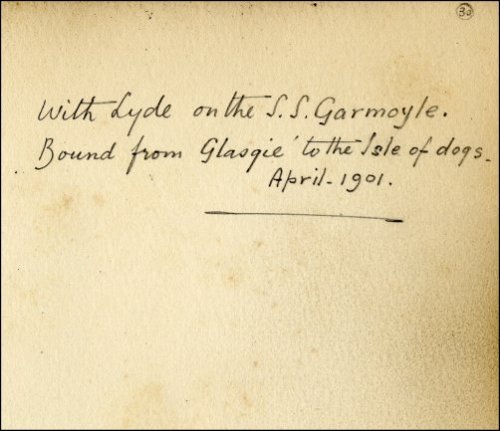 30
With Lyde on the S.S. Garmoyle.
Bound from Glasgie' to the Isle of dogs.
April - 1901.